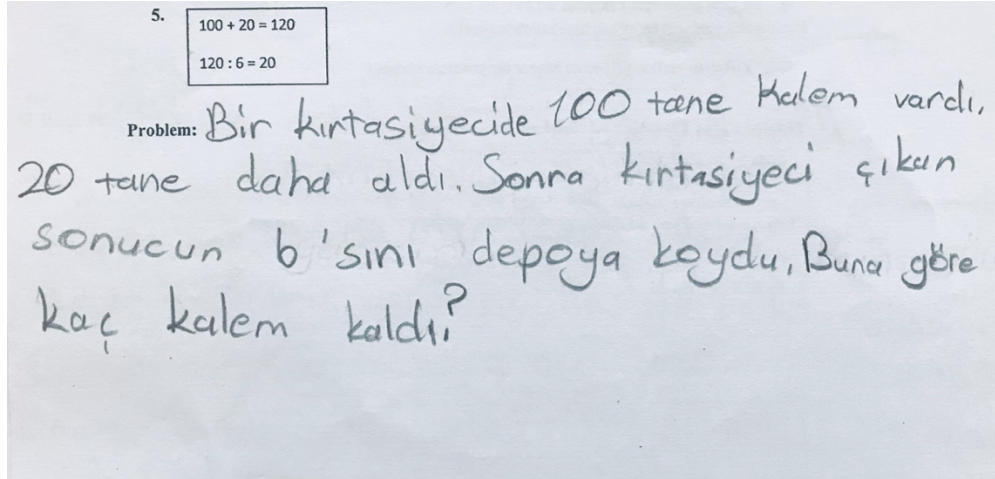 5.
100 + 20 = 120
120 : 6 = 20
Problem: Bir kırtasiyecide 100 tane kalem vardı,
20 tane daha aldı. Sonra kırtasiyeci çıkan
sonucun 6'sını depoya koydu, Buna göre
kaç kalem kaldı?